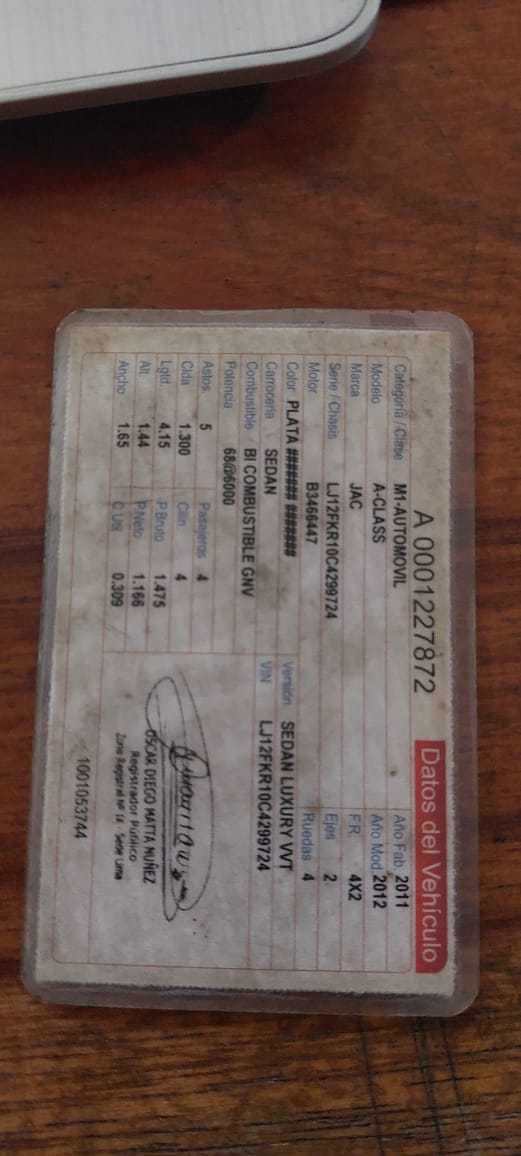 A 0001227872 Datos del Vehículo
Categoría / Clase M1-AUTOMOVIL Año Fab 2011
Modelo A-CLASS Año Mod 2012
Marca JAC FR. 4X2
Serie / Chasis LJ12FKR10C4299724 Ejes 2
Motor B3466447 Ruedas 4
Color PLATA ####### ####### Versión SEDAN LUXURY VVT
Carrocería SEDAN VIN LJ12FKR10C4299724
Combustible BI COMBUSTIBLE GNV
Potencia 68@6000
Astos 5 Pasajeros 4
Clda 1.300 Cilin 4
Lgtd. 4.15 P.Bruto 1.475
Alt. 1.44 P.Neto 1.166
Ancho 1.65 C.Util 0.309
OSCAR DIEGO MATTA NUÑEZ
Registrador Público
Zona Registral Nº IX Sede Lima
1001053744